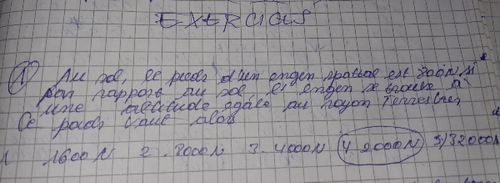 EXERCICES
① Au sol, le poids d'un engin spatial est 8000N si
par rapport au sol, cet engin se trouve à
une altitude égale au rayon terrestre,
Ce poids vaut alors
1 1600N 2. 8000N 3. 4000N 4 2000N 5) 32000N